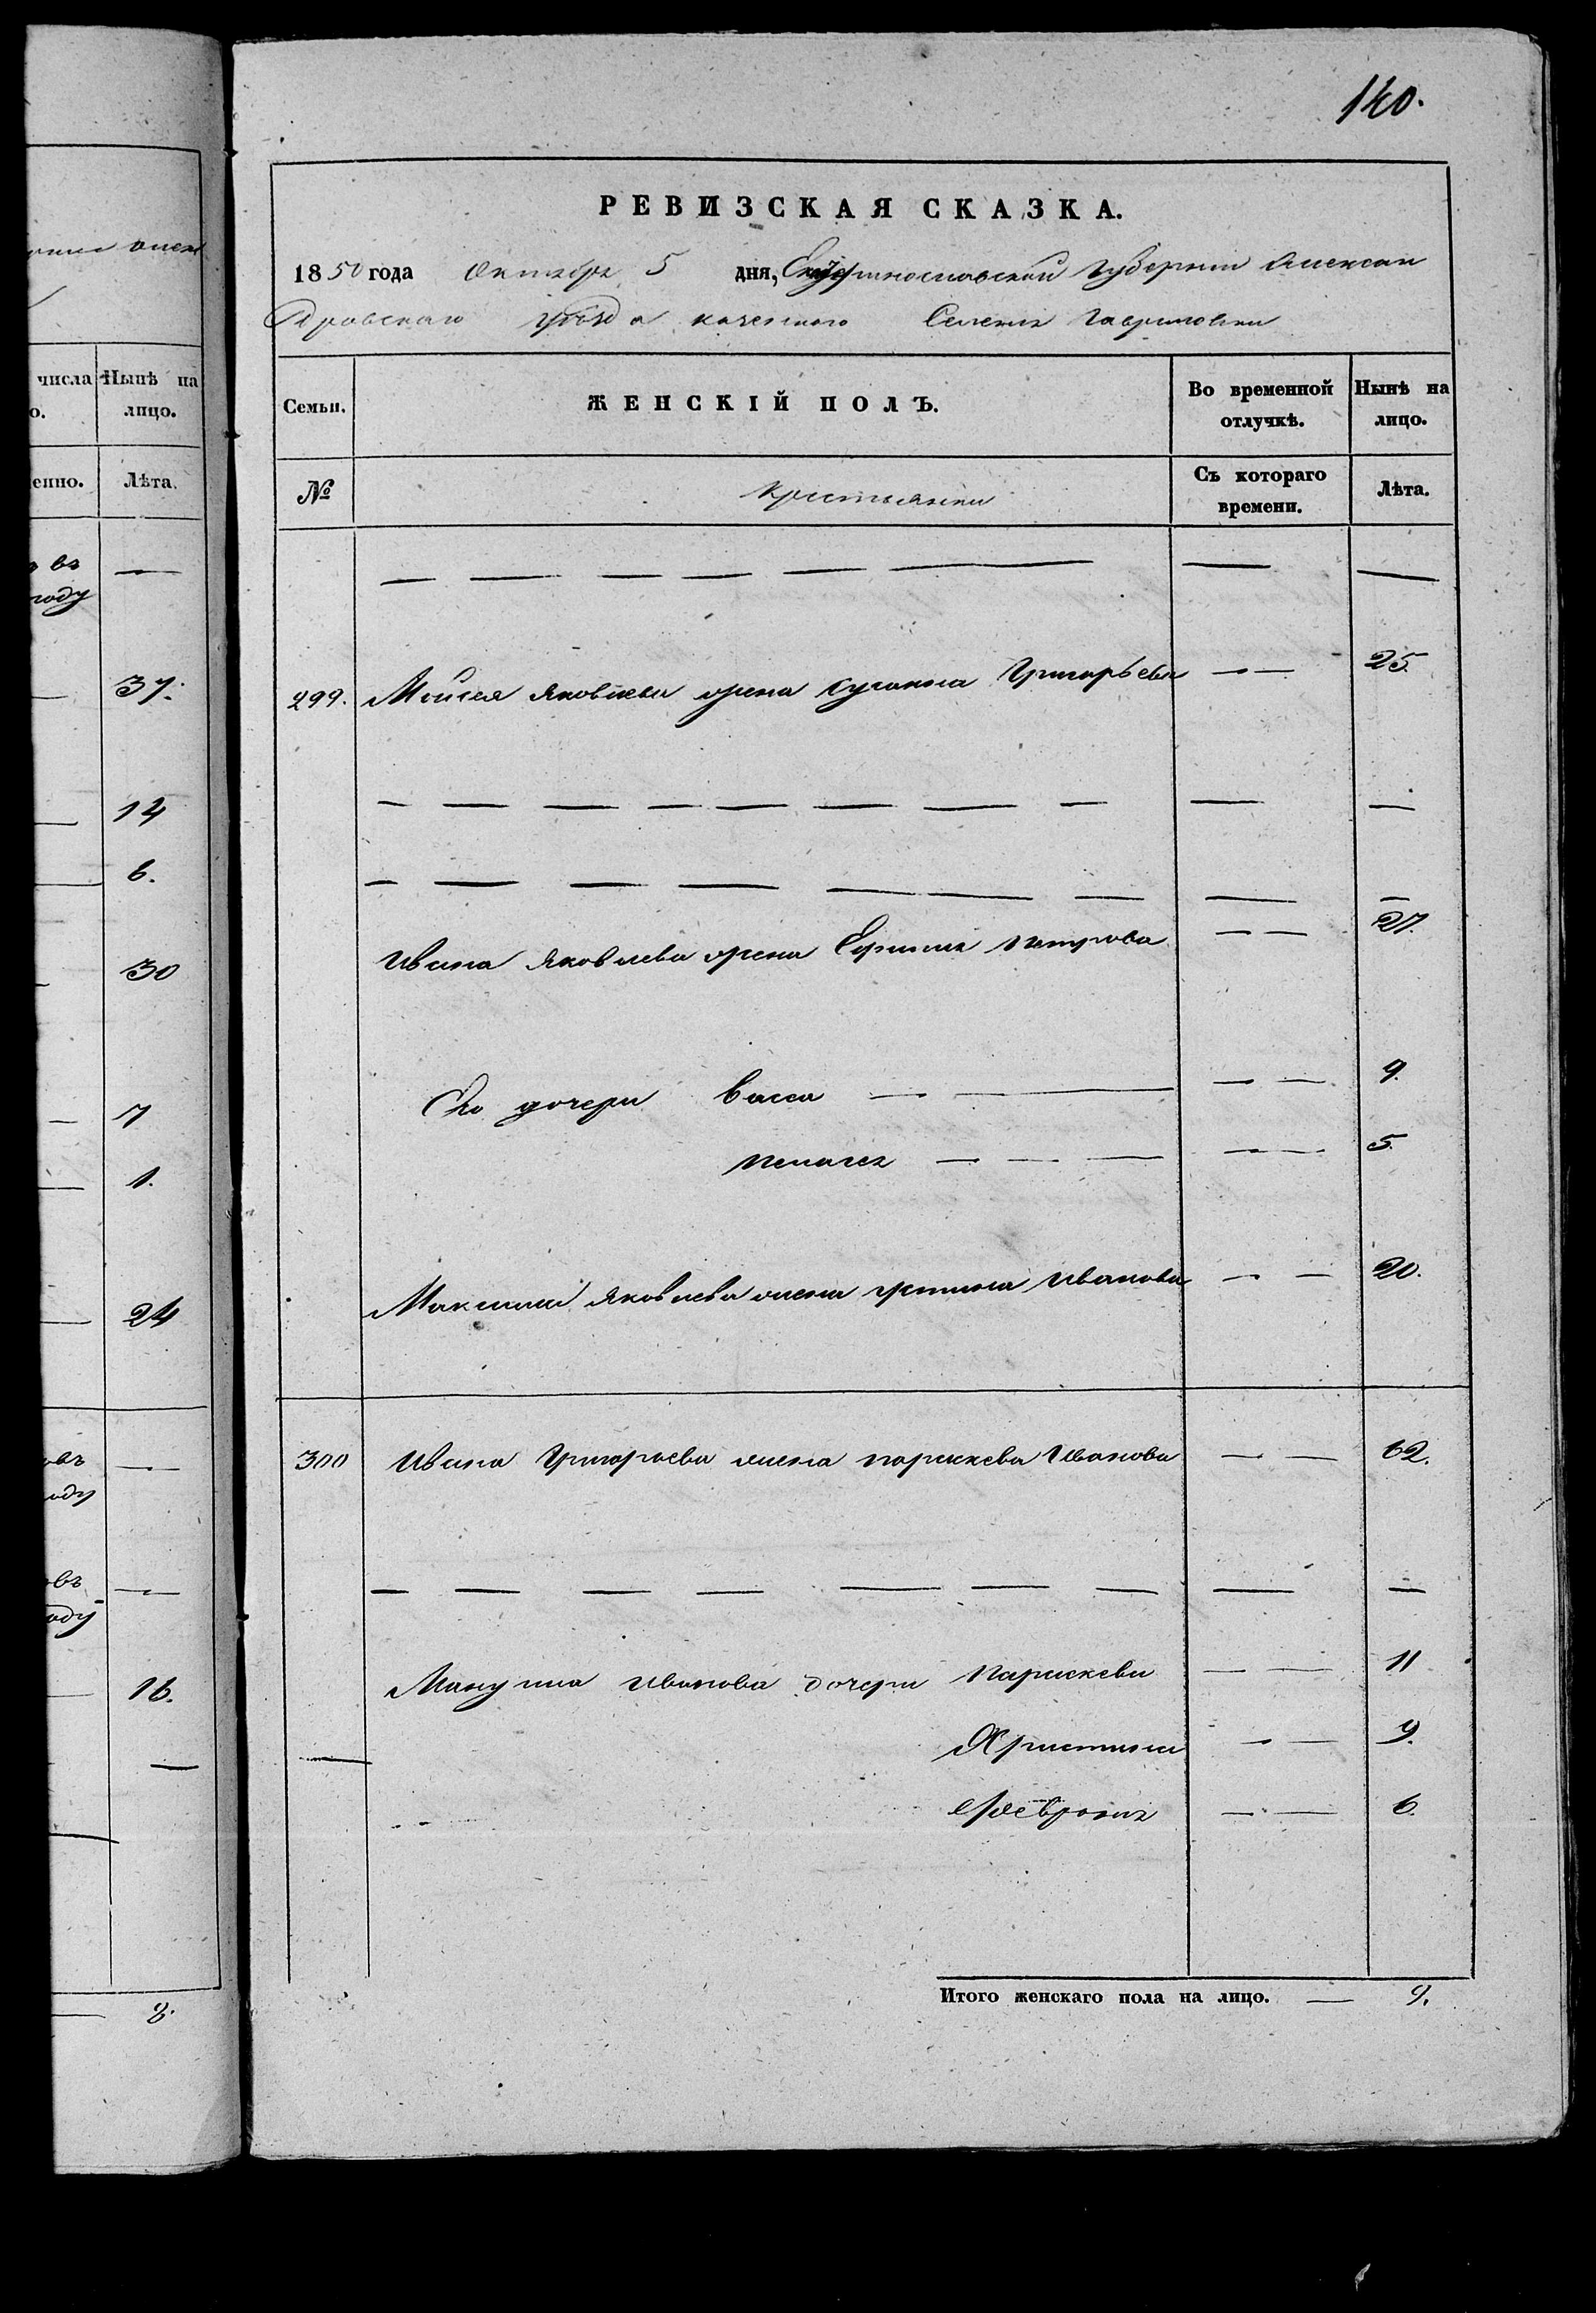 140.
РЕВИЗСКАЯ СКАЗКА.
1850 года Октября 5 дня, Екатеринославской Губернии Алексан
дровскаго уѣзда казеннаго Селения Гавриловки
Семьи. ЖЕНСКІЙ ПОЛЪ. Во временной отлучкѣ. Нынѣ на лицо.
№ Крестьянки Съ котораго времени. Лѣта.
299. Моисея Яковлева жена Сусанна Григорьева — — 25.
Ивана Яковлева жена Ефимия Петрова — — 27.
Его дочери Васса — — 9.
Пелагея — — 5.
Максима Яковлева жена Устинья Иванова — — 20.
300 Ивана Григорьева жена Параскева Иванова — — 62.
Иванова дочери Параскева — — 11
Христина — — 9.
Феврония — — 6.
Итого женскаго пола на лицо. — 9.
числа Нынѣ на
о. лицо.
енно. Лѣта.
въ —
году
37.
14
6.
30
7
1.
24
въ —
оду
въ —
оду
16.
8.